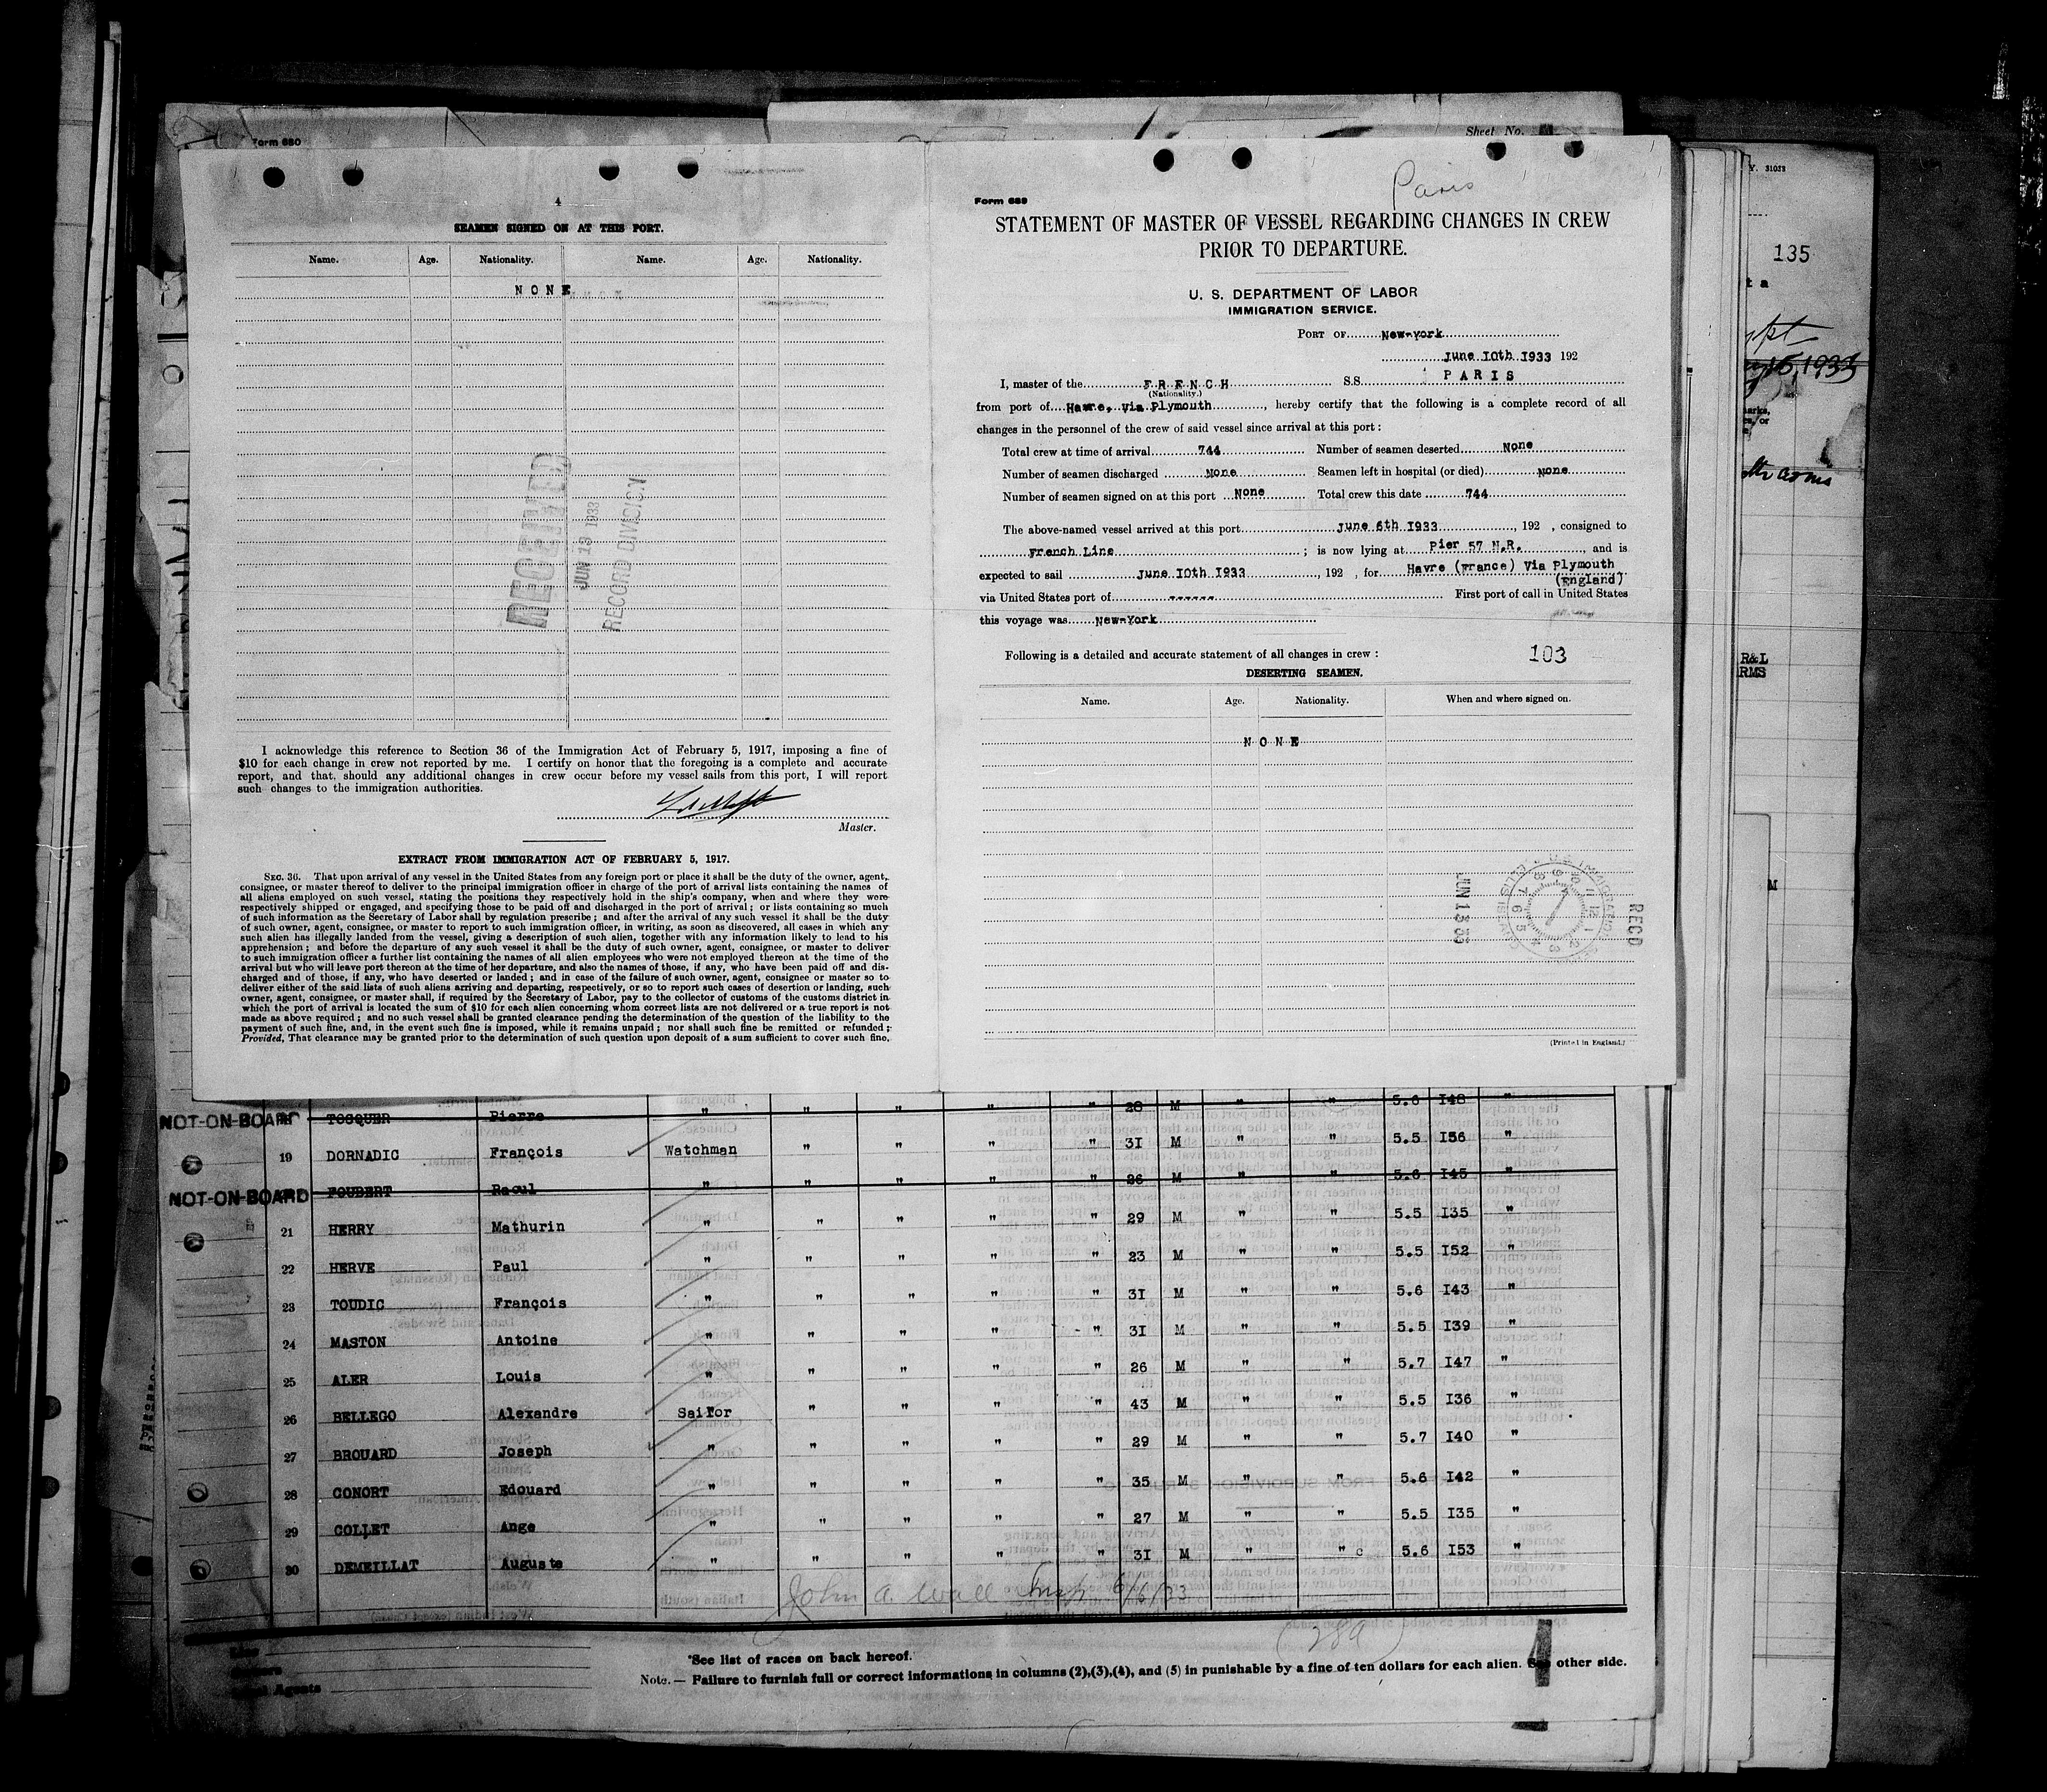 Form 680
Sheet No.
4
SEAMEN SIGNED ON AT THIS PORT.
Name. Age. Nationality. Name. Age. Nationality.
NONE
RECEIVED
JUN 13 1933
RECORD DIVISION
I acknowledge this reference to Section 36 of the Immigration Act of February 5, 1917, imposing a fine of
$10 for each change in crew not reported by me. I certify on honor that the foregoing is a complete and accurate
report, and that, should any additional changes in crew occur before my vessel sails from this port, I will report
such changes to the immigration authorities.
Master.
EXTRACT FROM IMMIGRATION ACT OF FEBRUARY 5, 1917.
SEC. 36. That upon arrival of any vessel in the United States from any foreign port or place it shall be the duty of the owner, agent,
consignee, or master thereof to deliver to the principal immigration officer in charge of the port of arrival lists containing the names of
all aliens employed on such vessel, stating the positions they respectively hold in the ship's company, when and where they were
respectively shipped or engaged, and specifying those to be paid off and discharged in the port of arrival; or lists containing so much
of such information as the Secretary of Labor shall by regulation prescribe; and after the arrival of any such vessel it shall be the duty
of such owner, agent, consignee, or master to report to such immigration officer, in writing, as soon as discovered, all cases in which any
such alien has illegally landed from the vessel, giving a description of such alien, together with any information likely to lead to his
apprehension; and before the departure of any such vessel it shall be the duty of such owner, agent, consignee, or master to deliver
to such immigration officer a further list containing the names of all alien employees who were not employed thereon at the time of the
arrival but who will leave port thereon at the time of her departure, and also the names of those, if any, who have been paid off and dis-
charged and of those, if any, who have deserted or landed; and in case of the failure of such owner, agent, consignee or master so to
deliver either of the said lists of such aliens arriving and departing, respectively, or so to report such cases of desertion or landing, such
owner, agent, consignee, or master shall, if required by the Secretary of Labor, pay to the collector of customs of the customs district in
which the port of arrival is located the sum of $10 for each alien concerning whom correct lists are not delivered or a true report is not
made as above required; and no such vessel shall be granted clearance pending the determination of the question of the liability to the
payment of such fine, and, in the event such fine is imposed, while it remains unpaid; nor shall such fine be remitted or refunded;
Provided, That clearance may be granted prior to the determination of such question upon deposit of a sum sufficient to cover such fine.
Paris
Form 689
STATEMENT OF MASTER OF VESSEL REGARDING CHANGES IN CREW
PRIOR TO DEPARTURE.
U. S. DEPARTMENT OF LABOR
IMMIGRATION SERVICE.
PORT OF New-York
June 10th 1933 192
I, master of the FRENCH S.S. PARIS
(Nationality.)
from port of Havre, Via Plymouth, hereby certify that the following is a complete record of all
changes in the personnel of the crew of said vessel since arrival at this port:
Total crew at time of arrival 744 Number of seamen deserted None
Number of seamen discharged None Seamen left in hospital (or died) None
Number of seamen signed on at this port None Total crew this date 744
The above-named vessel arrived at this port June 6th 1933, 192 , consigned to
French Line ; is now lying at Pier 57 N.R., and is
expected to sail June 10th 1933, 192 , for Havre (France) Via Plymouth
(England)
via United States port of ------ First port of call in United States
this voyage was New-York
Following is a detailed and accurate statement of all changes in crew:
103
DESERTING SEAMEN.
Name. Age. Nationality. When and where signed on.
NONE
JUN 13 33
RECD
(Printed in England.)
NOT-ON-BOARD TOCQUER Pierre " " " " " 28 M " " 5.6 I48 "
19 DORNADIC François Watchman " " " " 31 M " " 5.5 I56 "
NOT-ON-BOARD FOUBERT Raoul " " " " " 26 M " " 5.6 I45 "
21 HERRY Mathurin " " " " " 29 M " " 5.5 I35 "
22 HERVE Paul " " " " " 23 M " " 5.5 I52 "
23 TOUDIC François " " " " " 31 M " " 5.6 I43 "
24 MASTON Antoine " " " " " 31 M " " 5.5 I39 "
25 ALER Louis " " " " " 26 M " " 5.7 I47 "
26 BELLEGO Alexandre Sailor " " " " 43 M " " 5.5 I36 "
27 BROUARD Joseph " " " " " 29 M " " 5.7 I40 "
28 CONORT Edouard " " " " " 35 M " " 5.6 I42 "
29 COLLET Ange " " " " " 27 M " " 5.5 I35 "
30 DEMEILLAT Auguste " " " " " 31 M " " 5.6 I53 "
John A. Wall Insp 6/6/33
(289)
*See list of races on back hereof.
Note. — Failure to furnish full or correct informations in columns (2),(3),(4), and (5) in punishable by a fine of ten dollars for each alien. See other side.
31033
135
1933
R&L
RMS
M